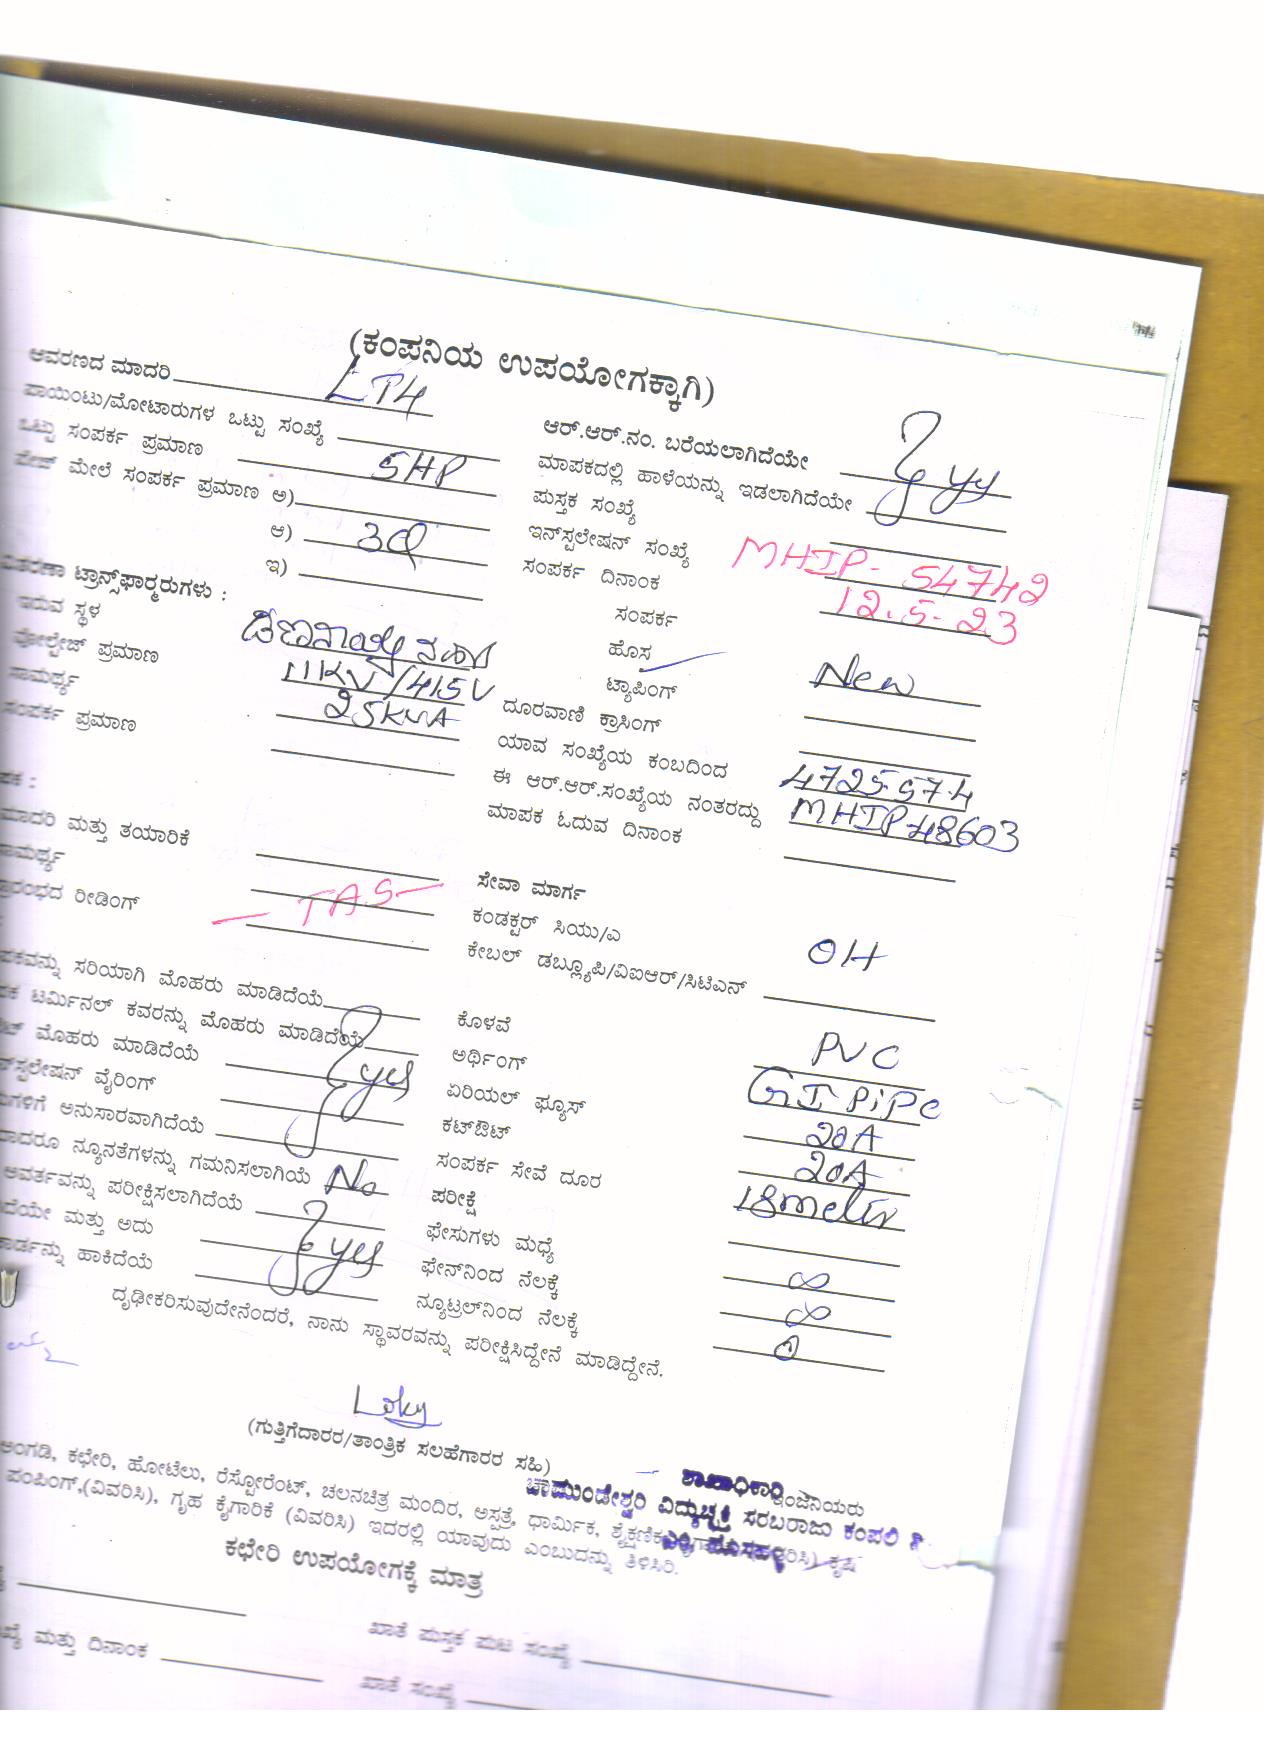 (ಕಂಪನಿಯ ಉಪಯೋಗಕ್ಕಾಗಿ)
ಆವರಣದ ಮಾದರಿ LT4
ಪಾಯಿಂಟು/ಮೋಟಾರುಗಳ ಒಟ್ಟು ಸಂಖ್ಯೆ
ಒಟ್ಟು ಸಂಪರ್ಕ ಪ್ರಮಾಣ 5HP
ಮೇಲೆ ಸಂಪರ್ಕ ಪ್ರಮಾಣ ಅ)
ಆ) 3Ø
ಇ)
ಟ್ರಾನ್ಸ್‌ಫಾರ್ಮರುಗಳು :
ಇರುವ ಸ್ಥಳ
ವೋಲ್ಟೇಜ್ ಪ್ರಮಾಣ 11KV/415V
ಸಾಮರ್ಥ್ಯ 25KVA
ಸಂಪರ್ಕ ಪ್ರಮಾಣ
ಮಾದರಿ ಮತ್ತು ತಯಾರಿಕೆ
ಸಾಮರ್ಥ್ಯ - TAS -
ರೀಡಿಂಗ್
ಸರಿಯಾಗಿ ಮೊಹರು ಮಾಡಿದೆಯೆ
ಟರ್ಮಿನಲ್ ಕವರನ್ನು ಮೊಹರು ಮಾಡಿದೆಯೆ
ಮೊಹರು ಮಾಡಿದೆಯೆ yes
ವೈರಿಂಗ್
ಅನುಸಾರವಾಗಿದೆಯೆ
ನ್ಯೂನತೆಗಳನ್ನು ಗಮನಿಸಲಾಗಿಯೆ No
ಆವರ್ತವನ್ನು ಪರೀಕ್ಷಿಸಲಾಗಿದೆಯೆ
ಮತ್ತು ಅದು yes
ಹಾಕಿದೆಯೆ
ಆರ್.ಆರ್.ನಂ. ಬರೆಯಲಾಗಿದೆಯೇ
ಮಾಪಕದಲ್ಲಿ ಹಾಳೆಯನ್ನು ಇಡಲಾಗಿದೆಯೇ yes
ಪುಸ್ತಕ ಸಂಖ್ಯೆ
ಇನ್‌ಸ್ಟಲೇಷನ್ ಸಂಖ್ಯೆ MHIP-54742
ಸಂಪರ್ಕ ದಿನಾಂಕ 12.5-23
ಸಂಪರ್ಕ
ಹೊಸ New
ಟ್ಯಾಪಿಂಗ್
ದೂರವಾಣಿ ಕ್ರಾಸಿಂಗ್
ಯಾವ ಸಂಖ್ಯೆಯ ಕಂಬದಿಂದ 4725574
ಈ ಆರ್.ಆರ್.ಸಂಖ್ಯೆಯ ನಂತರದ್ದು MHIP48603
ಮಾಪಕ ಓದುವ ದಿನಾಂಕ
ಸೇವಾ ಮಾರ್ಗ
ಕಂಡಕ್ಟರ್ ಸಿಯು/ಎ OH
ಕೇಬಲ್ ಡಬ್ಲ್ಯೂಪಿ/ವಿಐಆರ್/ಸಿಟಿಎಸ್
ಕೊಳವೆ PVC
ಅರ್ಥಿಂಗ್ GI PiPe
ಏರಿಯಲ್ ಫ್ಯೂಸ್ 20A
ಕಟ್‌ಔಟ್ 20A
ಸಂಪರ್ಕ ಸೇವೆ ದೂರ 18meter
ಪರೀಕ್ಷೆ
ಫೇಸುಗಳು ಮಧ್ಯೆ ∞
ಫೇಸ್‌ನಿಂದ ನೆಲಕ್ಕೆ ∞
ನ್ಯೂಟ್ರಲ್‌ನಿಂದ ನೆಲಕ್ಕೆ 0
ದೃಢೀಕರಿಸುವುದೇನೆಂದರೆ, ನಾನು ಸ್ಥಾವರವನ್ನು ಪರೀಕ್ಷಿಸಿದ್ದೇನೆ ಮಾಡಿದ್ದೇನೆ.
(ಗುತ್ತಿಗೆದಾರರ/ತಾಂತ್ರಿಕ ಸಲಹೆಗಾರರ ಸಹಿ)
ಶಾಖಾಧಿಕಾರಿ ಇಂಜಿನಿಯರು
ಚಾಮುಂಡೇಶ್ವರಿ ವಿದ್ಯುಚ್ಛಕ್ತಿ ಸರಬರಾಜು ಕಂಪನಿ
ಅಂಗಡಿ, ಕಛೇರಿ, ಹೋಟೆಲು, ರೆಸ್ಟೋರೆಂಟ್, ಚಲನಚಿತ್ರ ಮಂದಿರ, ಆಸ್ಪತ್ರೆ, ಧಾರ್ಮಿಕ, ಶೈಕ್ಷಣಿಕ ಕೃಷಿ
ಪಂಪಿಂಗ್,(ವಿವರಿಸಿ), ಗೃಹ ಕೈಗಾರಿಕೆ (ವಿವರಿಸಿ) ಇದರಲ್ಲಿ ಯಾವುದು ಎಂಬುದನ್ನು ತಿಳಿಸಿರಿ.
ಕಛೇರಿ ಉಪಯೋಗಕ್ಕೆ ಮಾತ್ರ
ಖಾತೆ ಪುಸ್ತಕ ಪುಟ ಸಂಖ್ಯೆ
ಮತ್ತು ದಿನಾಂಕ
ಖಾತೆ ಸಂಖ್ಯೆ